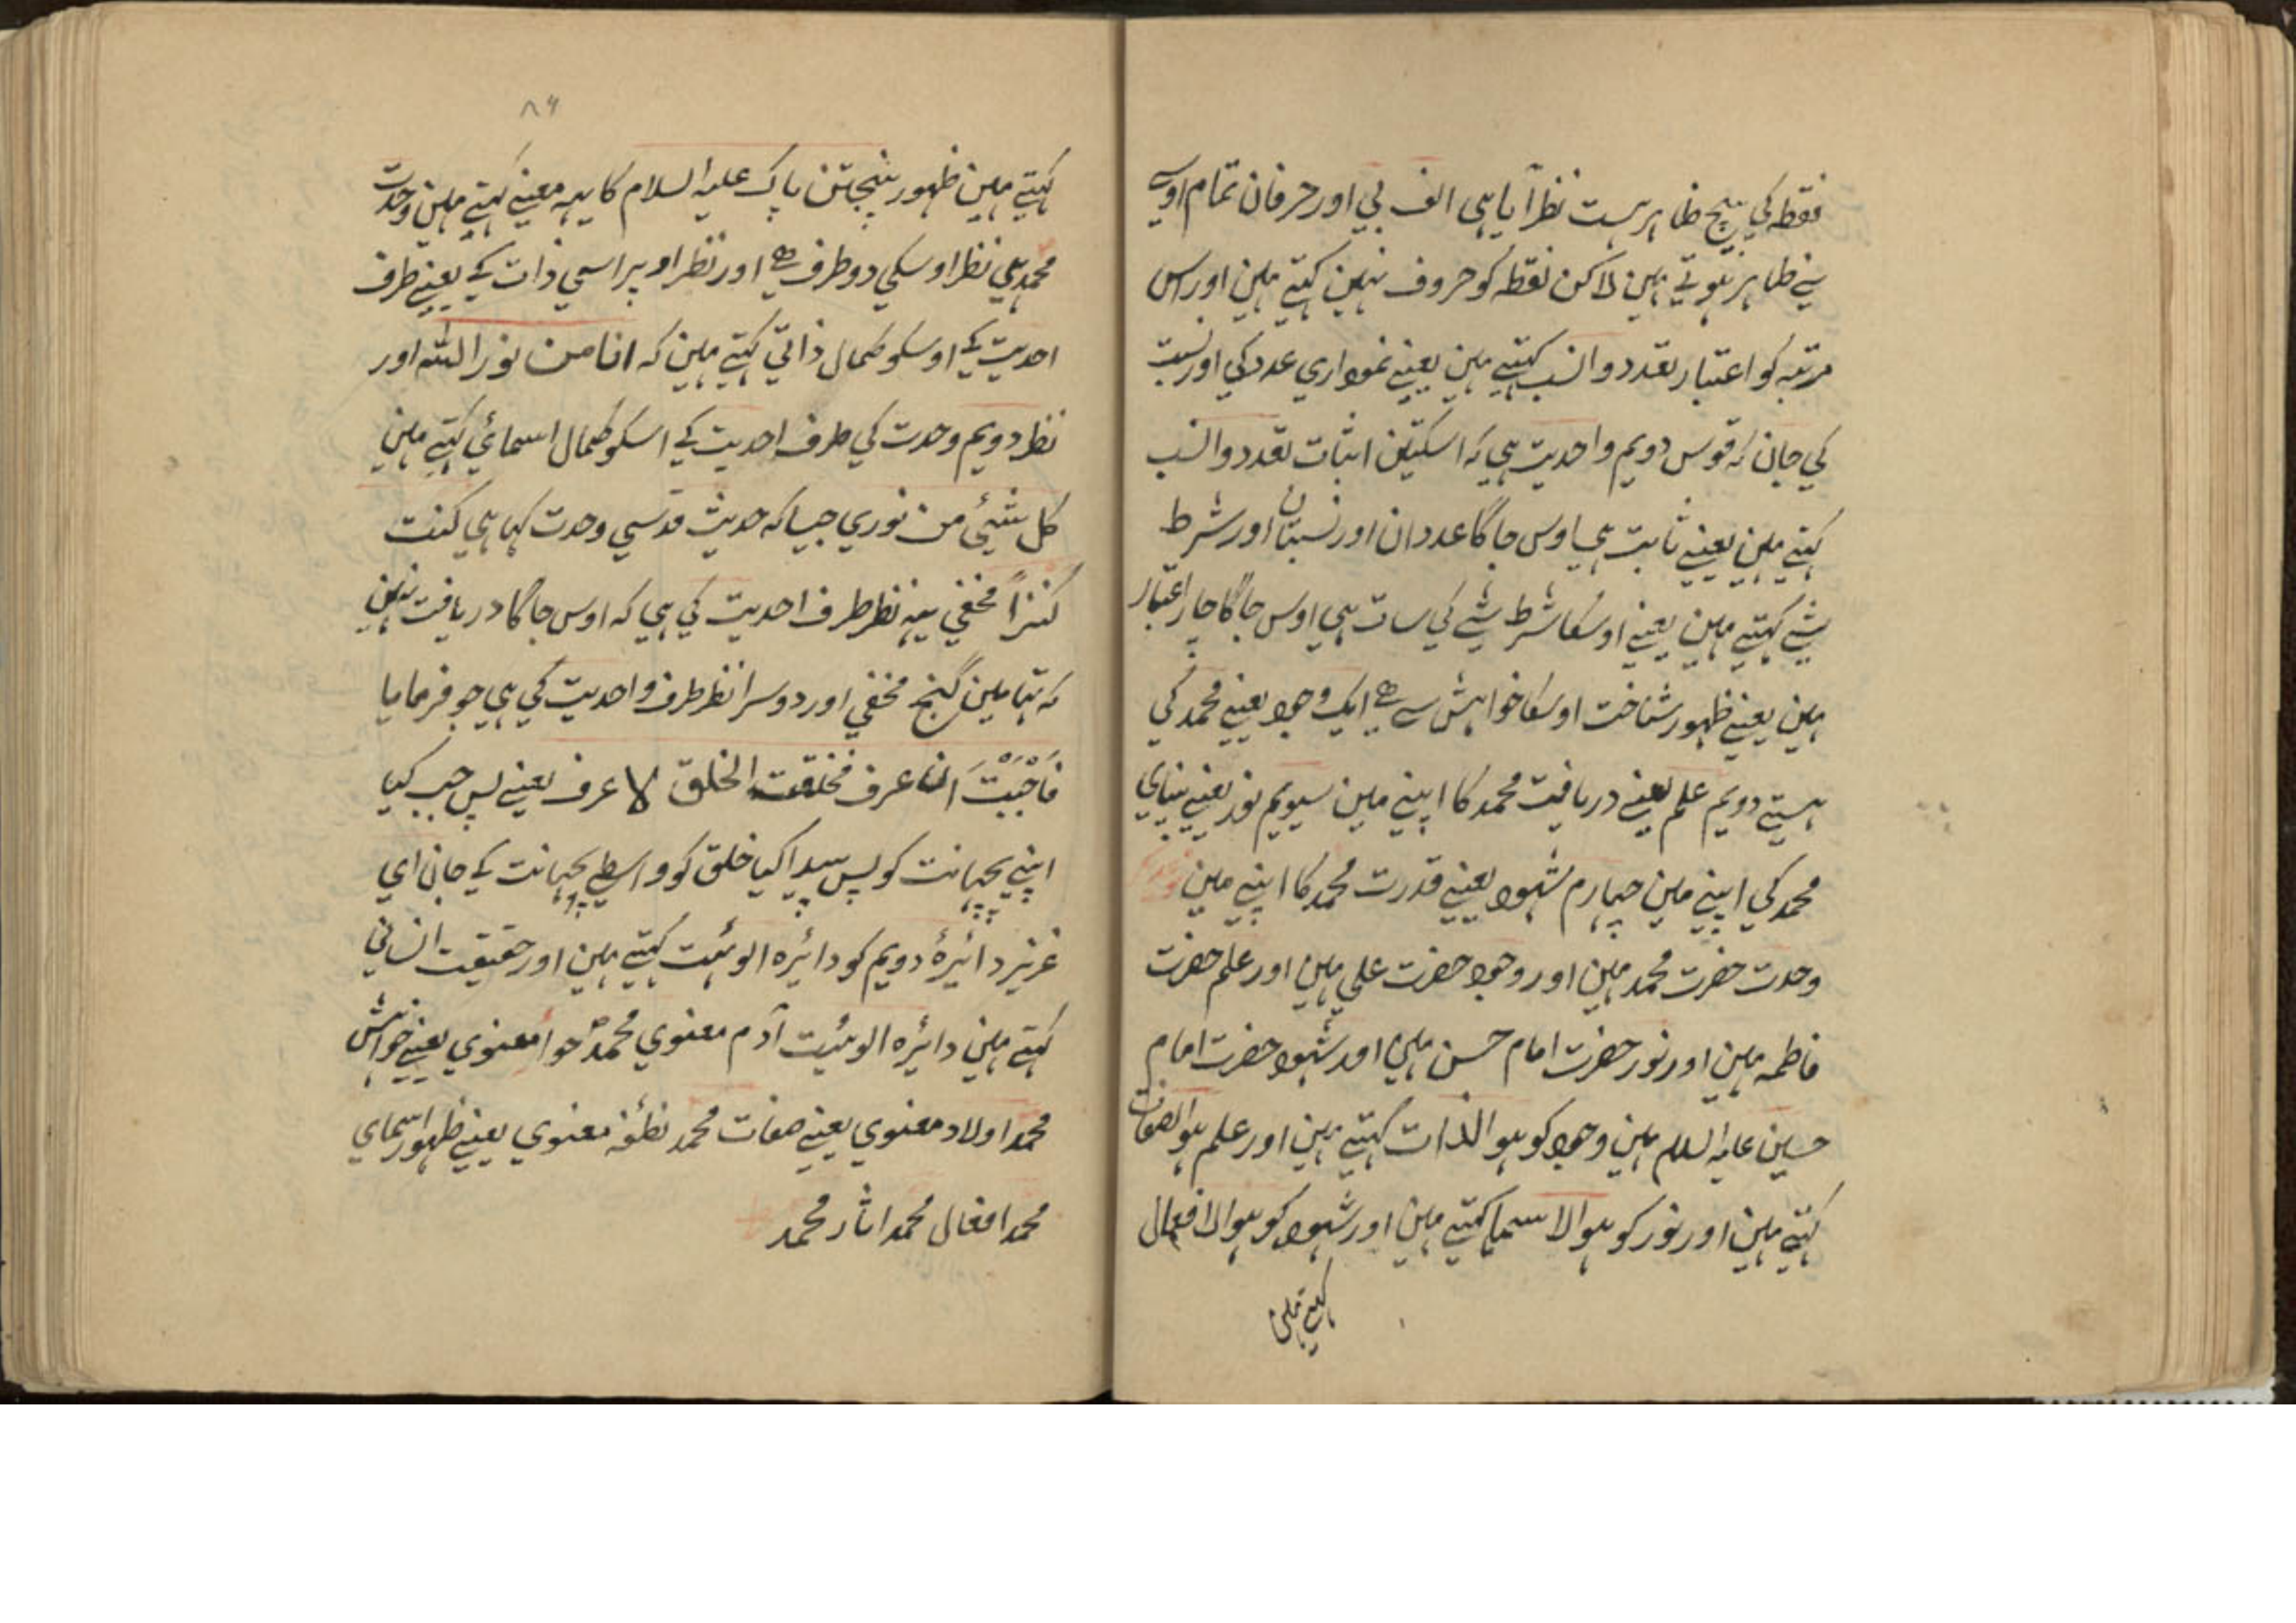 نقطہ کي بیچ ظاہر ہست نظر آیا ہی الف بي اور حرفان تمام اوس
سے ظاہر ہوتے ہین لاکن نقطہ کو حروف نہین کہتے ہین اور اس
مرتبہ کو اعتبار تعدد و النسب کہتے ہین یعنے نموداري عدد کي اور نسبت
کي جان کہ قوس دویم واحدیت ہي کہ اسکتین اثبات تعدد و النسب
کہتے ہین یعنے ثابت ہي اوس جاگا عددان اور نسبتان اور شرط
شے کہتے ہین یعنے اوسکا شرط شے کي سات ہي اوس جاگا چار اعتبار
ہین یعنے ظہور شناخت اوسکا خواہش سے ہے ایک وجود یعنے محمد کي
ہستے دویم علم یعنے دریافت محمد کا اپنے مین سیویم نور یعنے بیناي
محمد کي اپنے مین چہارم شہود یعنے قدرت محمد کا اپنے مین
وحدت حضرت محمد ہین اور وجود حضرت علي ہین اور علم حضرت
فاطمہ ہین اور نور حضرت امام حسن ہین اور شہود حضرت امام
حسین علیہ السلام ہین وجود کو ہو الذات کہتے ہین اور علم ہو الصفات
کہتے ہین اور نور کو ہو الاسما کہتے ہین اور شہود کو ہو الافعال
کہتے ہین
۸۶
کہتے ہین ظہور پنجتن پاک علیہ السلام کا یہہ معنے کہتے ہین وحدت
محمد ہي نظر اوسکي دو طرف ہے اور نظر اوپر اسي ذات کے یعنے طرف
احدیت کے اوسکو کمال ذاتي کہتے ہین کہ انا من نور اللہ اور
نظر دویم وحدت کي طرف احدیت کے اسکو کمال اسمائي کہتے ہین
کل شيئ من نوري جیسا کہ حدیث قدسي وحدت کہا ہي کنت
کنزاً مخفي یہہ نظر طرف احدیت کي ہي کہ اوس جاگا دریافت نہین
کہ تہا مین گنج مخفي اور دوسرا نظر طرف واحدیت کي ہي جو فرمایا
فَاَحْبَبْتَ ان اعرف فخلقت الخلق لا عرف یعنے پس حب کیا
اپنے پچہانت کو پس پیدا کیا خلق کو واسطے پچہانت کے جان اي
عزیز دائیرۂ دویم کو دائیرہ الوہئیت کہتے ہین اور حقیقت انساني
کہتے ہین دائیرہ الوہئیت آدم معنوي محمد حوا معنوي یعنے خواہش
محمد اولاد معنوي یعنے صفات محمد نطفہ معنوي یعنے ظہور اسماي
محمد افعال محمد اثار محمد